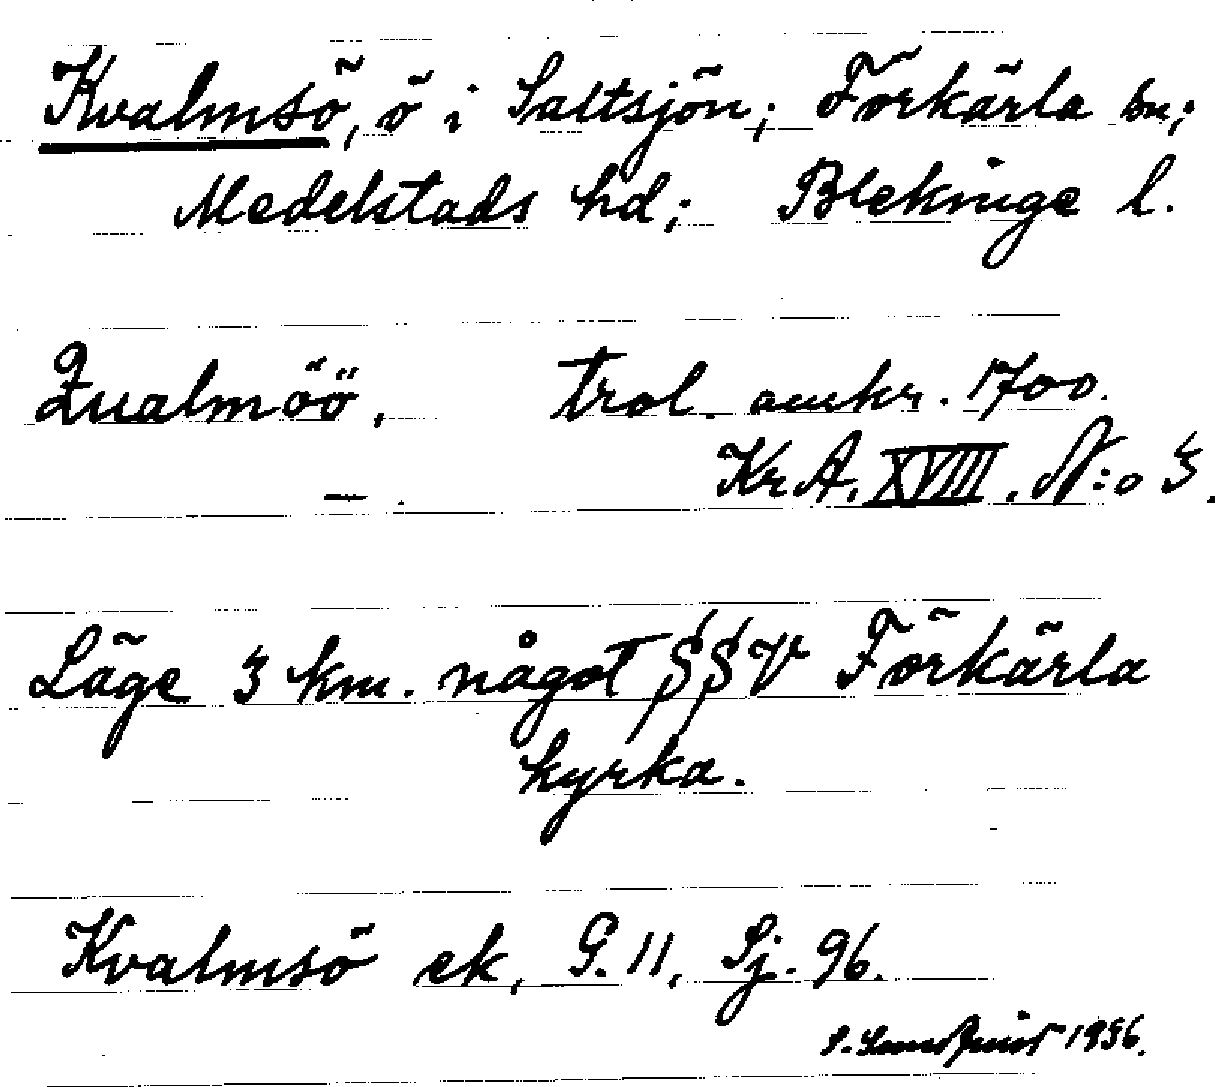 Kvalmsö, ö i Saltsjön; Förkärla sn;
Medelstads hd; Blekinge l.
Qualmöö, trol. omkr. 1700.
— . KrA. XVIII. N:o 3.
Läge 3 km. något SSV Förkärla
kyrka.
Kvalmsö ek, G. 11, Sj. 96.
1936.